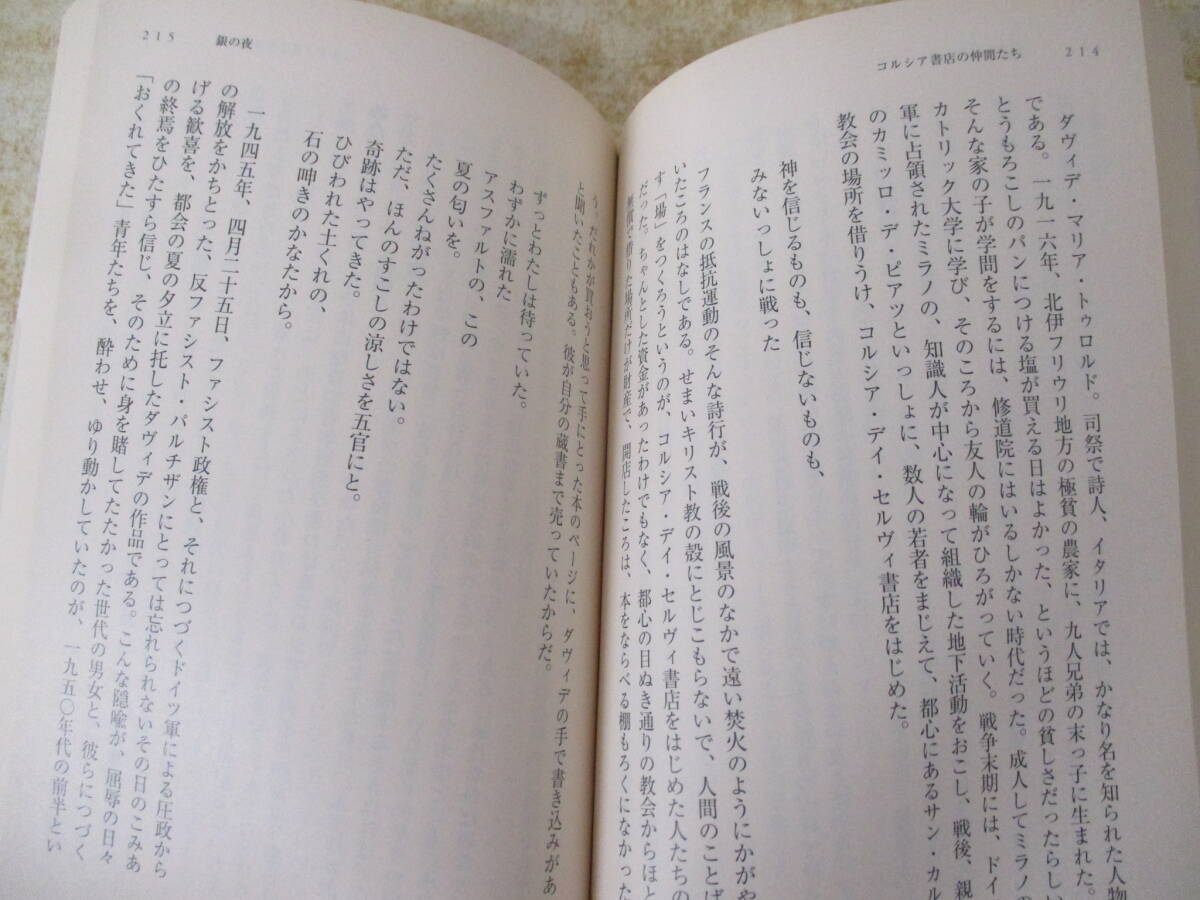 コルシア書店の仲間たち 214
ダヴィデ・マリア・トゥロルド。司祭で詩人、イタリアでは、かなり名を知られた人物
である。一九一六年、北伊フリウリ地方の極貧の農家に、九人兄弟の末っ子に生まれた。
とうもろこしのパンにつける塩が買える日はよかった、というほどの貧しさだったらしい
そんな家の子が学問をするには、修道院にはいるしかない時代だった。成人してミラノの
カトリック大学に学び、そのころから友人の輪がひろがっていく。戦争末期には、ドイ
軍に占領されたミラノの、知識人が中心になって組織した地下活動をおこし、戦後、親
のカミッロ・デ・ピアツといっしょに、数人の若者をまじえて、都心にあるサン・カル
教会の場所を借りうけ、コルシア・デイ・セルヴィ書店をはじめた。
神を信じるものも、信じないものも、
みないっしょに戦った
フランスの抵抗運動のそんな詩行が、戦後の風景のなかで遠い焚火のようにかがや
いたころのはなしである。せまいキリスト教の殻にとじこもらないで、人間のことば
す「場」をつくろうというのが、コルシア・デイ・セルヴィ書店をはじめた人たちの
だった。ちゃんとした資金があったわけでもなく、都心の目ぬき通りの教会からほと
無償で借りた場所だけが財産で、開店したころは、本をならべる棚もろくになかった
215 銀の夜
う。だれかが買おうと思って手にとった本のページに、ダヴィデの手で書き込みがあ
と聞いたこともある。彼が自分の蔵書まで売っていたからだ。
ずっとわたしは待っていた。
わずかに濡れた
アスファルトの、この
夏の匂いを。
たくさんねがったわけではない。
ただ、ほんのすこしの涼しさを五官にと。
奇跡はやってきた。
ひびわれた土くれの、
石の呻きのかなたから。
一九四五年、四月二十五日、ファシスト政権と、それにつづくドイツ軍による圧政から
の解放をかちとった、反ファシスト・パルチザンにとっては忘れられないその日のこみあ
げる歓喜を、都会の夏の夕立に托したダヴィデの作品である。こんな隠喩が、屈辱の日々
の終焉をひたすら信じ、そのために身を賭してたたかった世代の男女と、彼らにつづく
「おくれてきた」青年たちを、酔わせ、ゆり動かしていたのが、一九五〇年代の前半とい